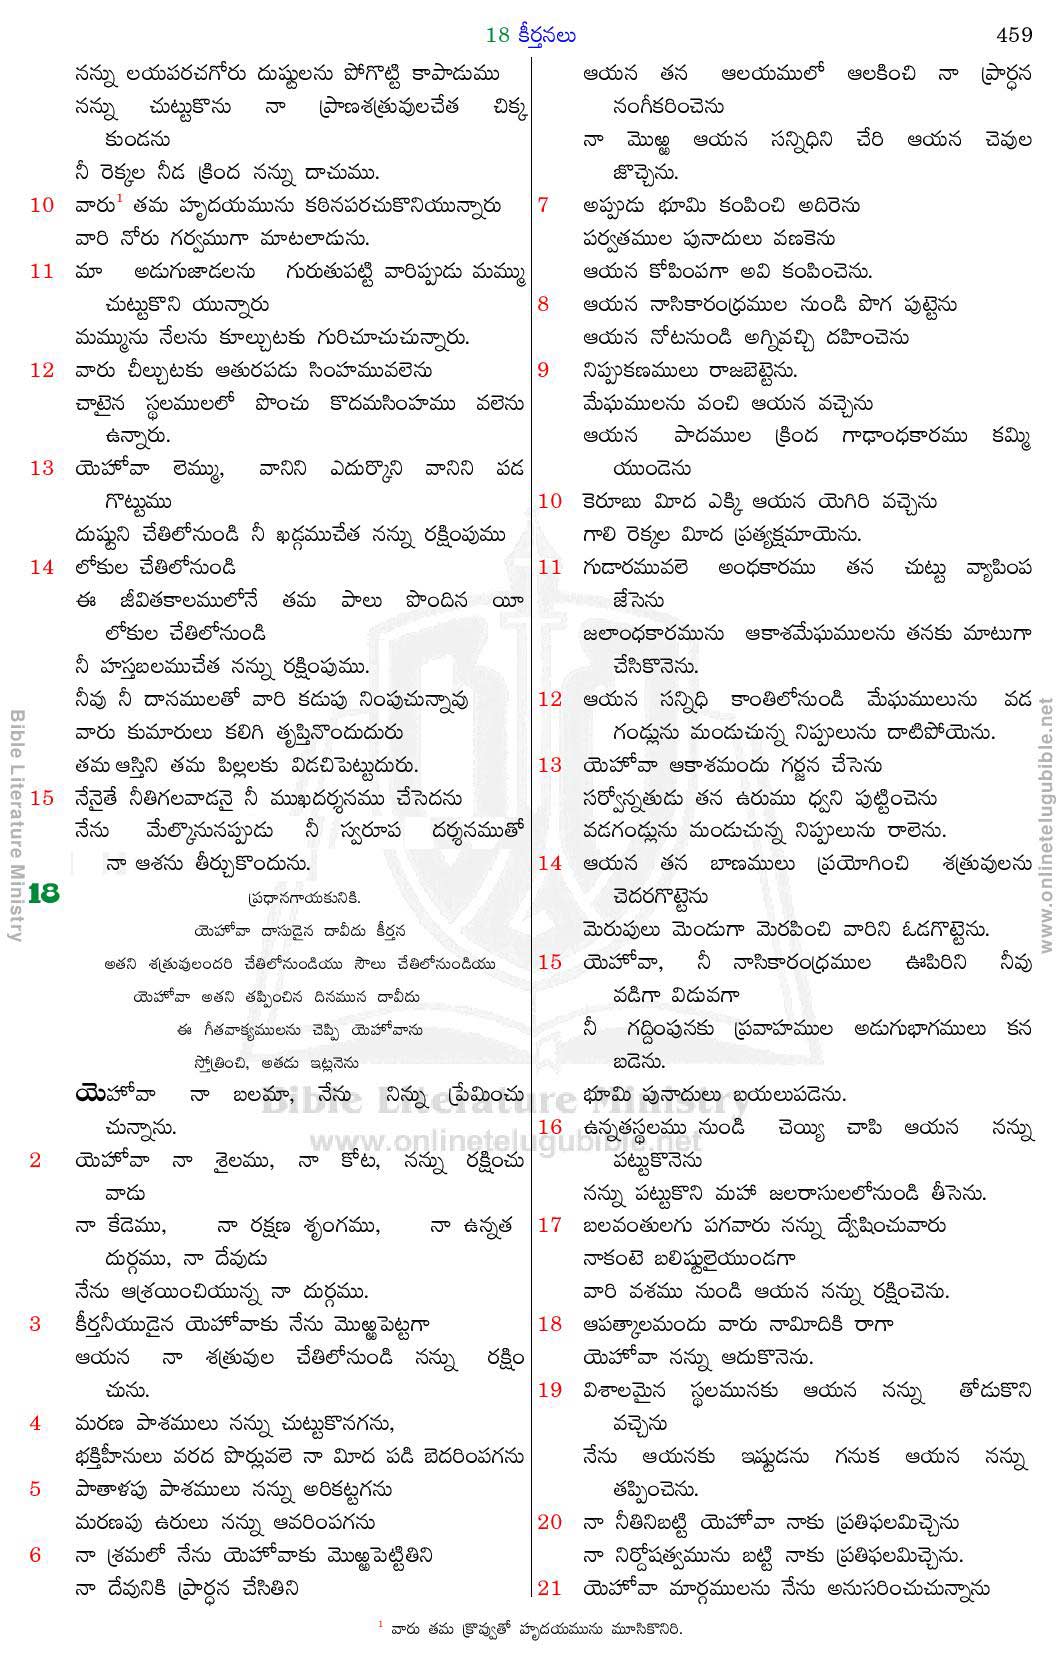 18 కీర్తనలు
459
నన్ను లయపరచగోరు దుష్టులను పోగొట్టి కాపాడుము
నన్ను చుట్టుకొను నా ప్రాణశత్రువులచేత చిక్క
కుండను
నీ రెక్కల నీడ క్రింద నన్ను దాచుము.
10 వారు1 తమ హృదయమును కఠినపరచుకొనియున్నారు
వారి నోరు గర్వముగా మాటలాడును.
11 మా అడుగుజాడలను గురుతుపట్టి వారిప్పుడు మమ్ము
చుట్టుకొని యున్నారు
మమ్మును నేలను కూల్చుటకు గురిచూచుచున్నారు.
12 వారు చీల్చుటకు ఆతురపడు సింహమువలెను
చాటైన స్థలములలో పొంచు కొదమసింహము వలెను
ఉన్నారు.
13 యెహోవా లెమ్ము, వానిని ఎదుర్కొని వానిని పడ
గొట్టుము
దుష్టుని చేతిలోనుండి నీ ఖడ్గముచేత నన్ను రక్షింపుము
14 లోకుల చేతిలోనుండి
ఈ జీవితకాలములోనే తమ పాలు పొందిన యీ
లోకుల చేతిలోనుండి
నీ హస్తబలముచేత నన్ను రక్షింపుము.
నీవు నీ దానములతో వారి కడుపు నింపుచున్నావు
వారు కుమారులు కలిగి తృప్తినొందుదురు
తమ ఆస్తిని తమ పిల్లలకు విడచిపెట్టుదురు.
15 నేనైతే నీతిగలవాడనై నీ ముఖదర్శనము చేసెదను
నేను మేల్కొనునప్పుడు నీ స్వరూప దర్శనముతో
నా ఆశను తీర్చుకొందును.
18 ప్రధానగాయకునికి.
యెహోవా దాసుడైన దావీదు కీర్తన
అతని శత్రువులందరి చేతిలోనుండియు సౌలు చేతిలోనుండియు
యెహోవా అతని తప్పించిన దినమున దావీదు
ఈ గీతవాక్యములను చెప్పి యెహోవాను
స్తోత్రించి, అతడు ఇట్లనెను
యెహోవా నా బలమా, నేను నిన్ను ప్రేమించు
చున్నాను.
2 యెహోవా నా శైలము, నా కోట, నన్ను రక్షించు
వాడు
నా కేడెము, నా రక్షణ శృంగము, నా ఉన్నత
దుర్గము, నా దేవుడు
నేను ఆశ్రయించియున్న నా దుర్గము.
3 కీర్తనీయుడైన యెహోవాకు నేను మొఱ్ఱపెట్టగా
ఆయన నా శత్రువుల చేతిలోనుండి నన్ను రక్షిం
చును.
4 మరణ పాశములు నన్ను చుట్టుకొనగను,
భక్తిహీనులు వరద పొర్లువలె నా మీద పడి బెదరింపగను
5 పాతాళపు పాశములు నన్ను అరికట్టగను
మరణపు ఉరులు నన్ను ఆవరింపగను
6 నా శ్రమలో నేను యెహోవాకు మొఱ్ఱపెట్టితిని
నా దేవునికి ప్రార్థన చేసితిని
ఆయన తన ఆలయములో ఆలకించి నా ప్రార్థన
నంగీకరించెను
నా మొఱ్ఱ ఆయన సన్నిధిని చేరి ఆయన చెవుల
జొచ్చెను.
7 అప్పుడు భూమి కంపించి అదిరెను
పర్వతముల పునాదులు వణకెను
ఆయన కోపింపగా అవి కంపించెను.
8 ఆయన నాసికారంధ్రముల నుండి పొగ పుట్టెను
ఆయన నోటనుండి అగ్నివచ్చి దహించెను
9 నిప్పుకణములు రాజబెట్టెను.
మేఘములను వంచి ఆయన వచ్చెను
ఆయన పాదముల క్రింద గాఢాంధకారము కమ్మి
యుండెను
10 కెరూబు మీద ఎక్కి ఆయన యెగిరి వచ్చెను
గాలి రెక్కల మీద ప్రత్యక్షమాయెను.
11 గుడారమువలె అంధకారము తన చుట్టు వ్యాపింప
జేసెను
జలాంధకారమును ఆకాశమేఘములను తనకు మాటుగా
చేసికొనెను.
12 ఆయన సన్నిధి కాంతిలోనుండి మేఘములును వడ
గండ్లును మండుచున్న నిప్పులును దాటిపోయెను.
13 యెహోవా ఆకాశమందు గర్జన చేసెను
సర్వోన్నతుడు తన ఉరుము ధ్వని పుట్టించెను
వడగండ్లును మండుచున్న నిప్పులును రాలెను.
14 ఆయన తన బాణములు ప్రయోగించి శత్రువులను
చెదరగొట్టెను
మెరుపులు మెండుగా మెరపించి వారిని ఓడగొట్టెను.
15 యెహోవా, నీ నాసికారంధ్రముల ఊపిరిని నీవు
వడిగా విడువగా
నీ గద్దింపునకు ప్రవాహముల అడుగుభాగములు కన
బడెను.
భూమి పునాదులు బయలుపడెను.
16 ఉన్నతస్థలము నుండి చెయ్యి చాపి ఆయన నన్ను
పట్టుకొనెను
నన్ను పట్టుకొని మహా జలరాసులలోనుండి తీసెను.
17 బలవంతులగు పగవారు నన్ను ద్వేషించువారు
నాకంటె బలిష్టులైయుండగా
వారి వశము నుండి ఆయన నన్ను రక్షించెను.
18 ఆపత్కాలమందు వారు నామీదికి రాగా
యెహోవా నన్ను ఆదుకొనెను.
19 విశాలమైన స్థలమునకు ఆయన నన్ను తోడుకొని
వచ్చెను
నేను ఆయనకు ఇష్టుడను గనుక ఆయన నన్ను
తప్పించెను.
20 నా నీతినిబట్టి యెహోవా నాకు ప్రతిఫలమిచ్చెను
నా నిర్దోషత్వమును బట్టి నాకు ప్రతిఫలమిచ్చెను.
21 యెహోవా మార్గములను నేను అనుసరించుచున్నాను
1 వారు తమ క్రొవ్వుతో హృదయమును మూసికొనిరి.
Bible Literature Ministry
www.onlinetelugubible.net
Bible Literature Ministry
www.onlinetelugubible.net